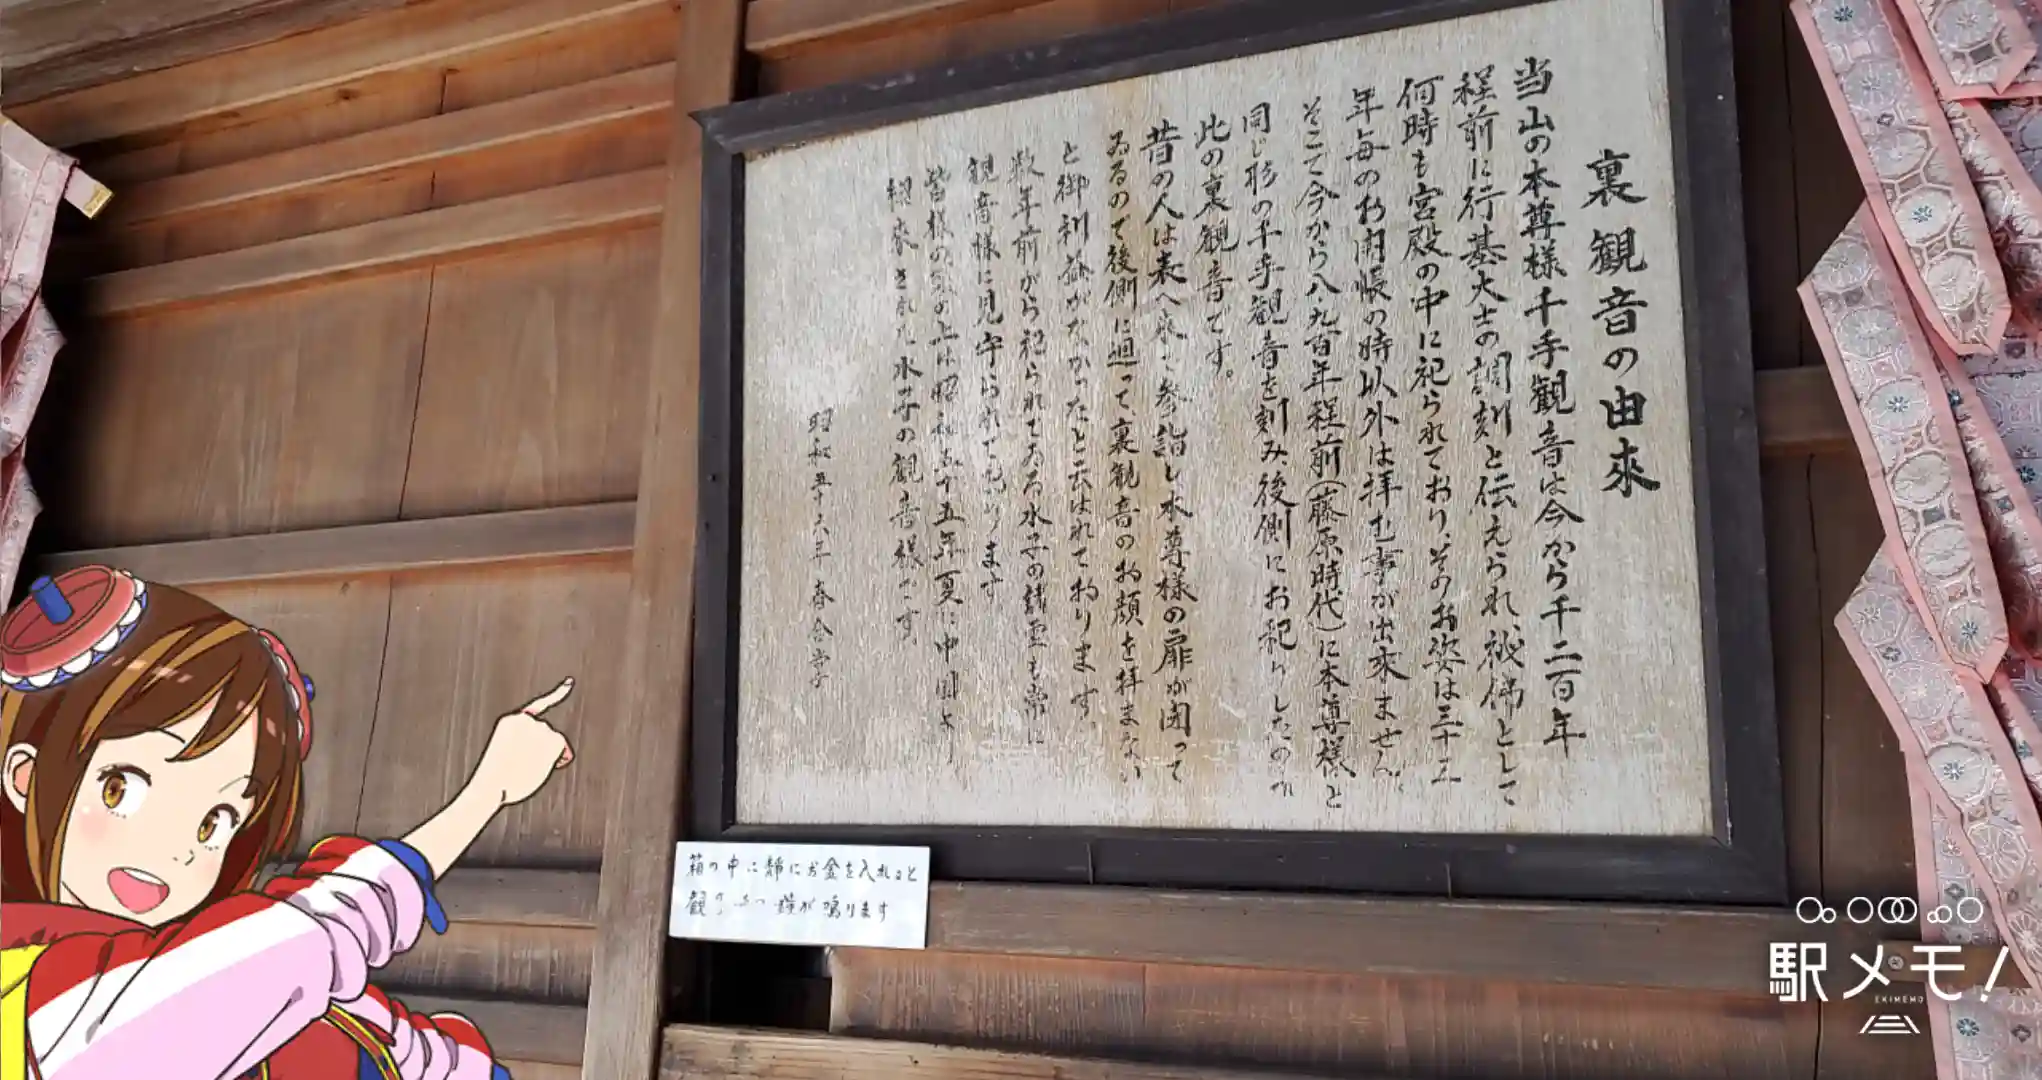 裏観音の由來
当山の本尊様千手観音は今から千二百年
程前に行基大士の調刻と伝えられ、秘佛として
何時も宮殿の中に祀られており、そのお姿は三十三
年毎のお開帳の時以外は拝む事が出来ません。
そこで今から八、九百年程前(藤原時代)に本尊様と
同じ杉の千手観音を刻み、後側にお祀りしたのが
此の裏観音です。
昔の人は表へ来て参詣し本尊様の扉が閉って
ゐるので後側に廻って、裏観音のお顔を拝まない
と御利益がなかったと云はれて
ります。
数年前から祀られてゐる水子の
霊も常に
観音様に見守られて
ます
皆様の
の上は昭和五十五年夏に中国より
來された水子の観音様です。
昭和五十六年 春
箱の中に静にお金を入れると
観
鐘が鳴ります
駅メモ!
EKIMEMO